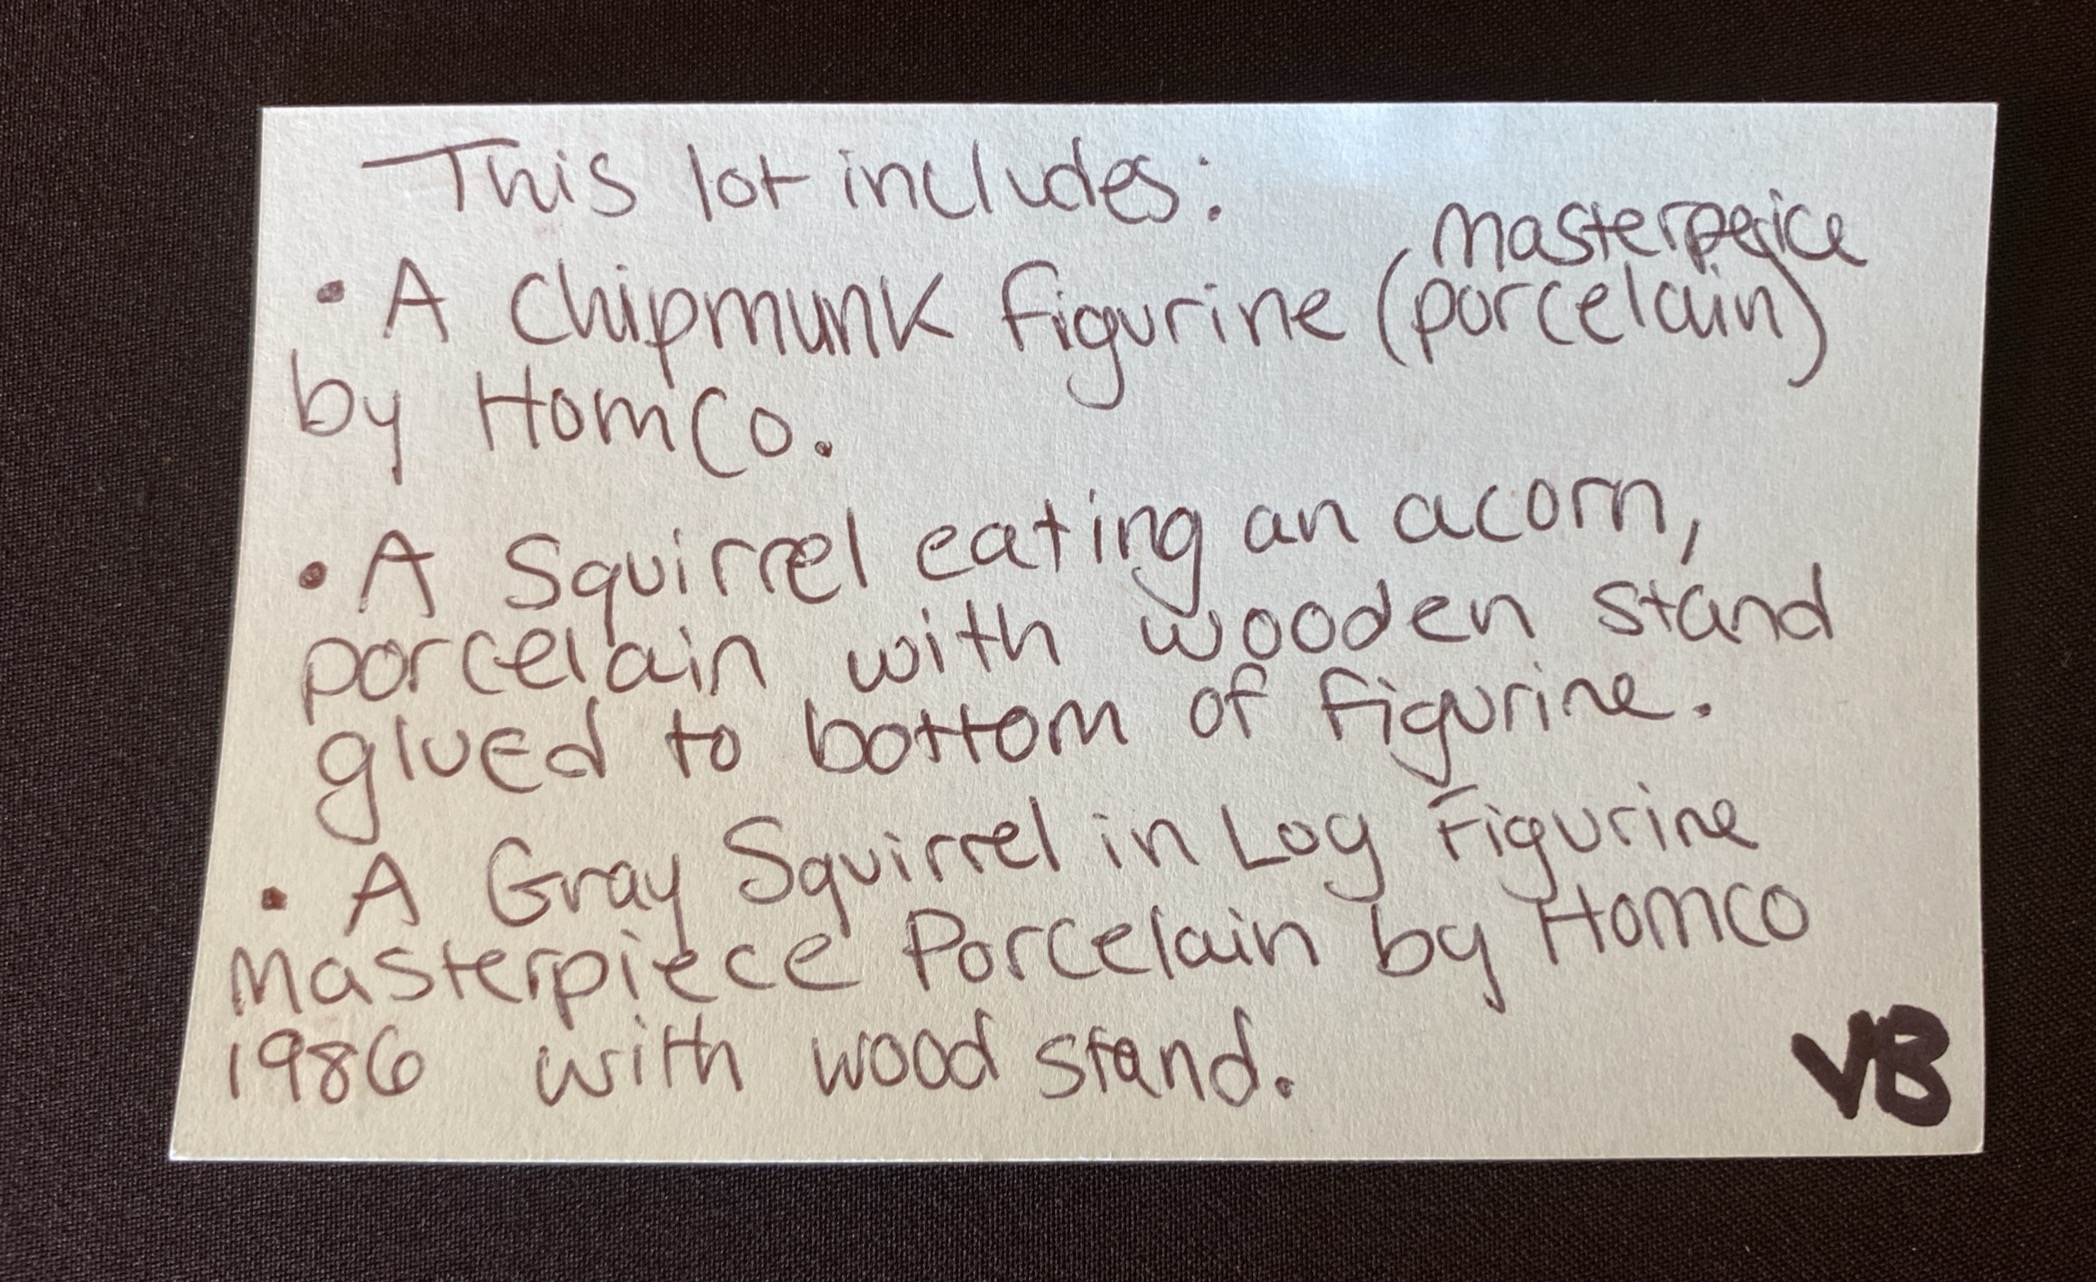 This lot includes:
masterpeice
• A Chipmunk figurine (porcelain)
by HomCo.
• A Squirrel eating an acorn,
porcelain with wooden stand
glued to bottom of figurine.
• A Gray Squirrel in Log Figurine
Masterpiece Porcelain by Homco
1986 with wood stand.
VB